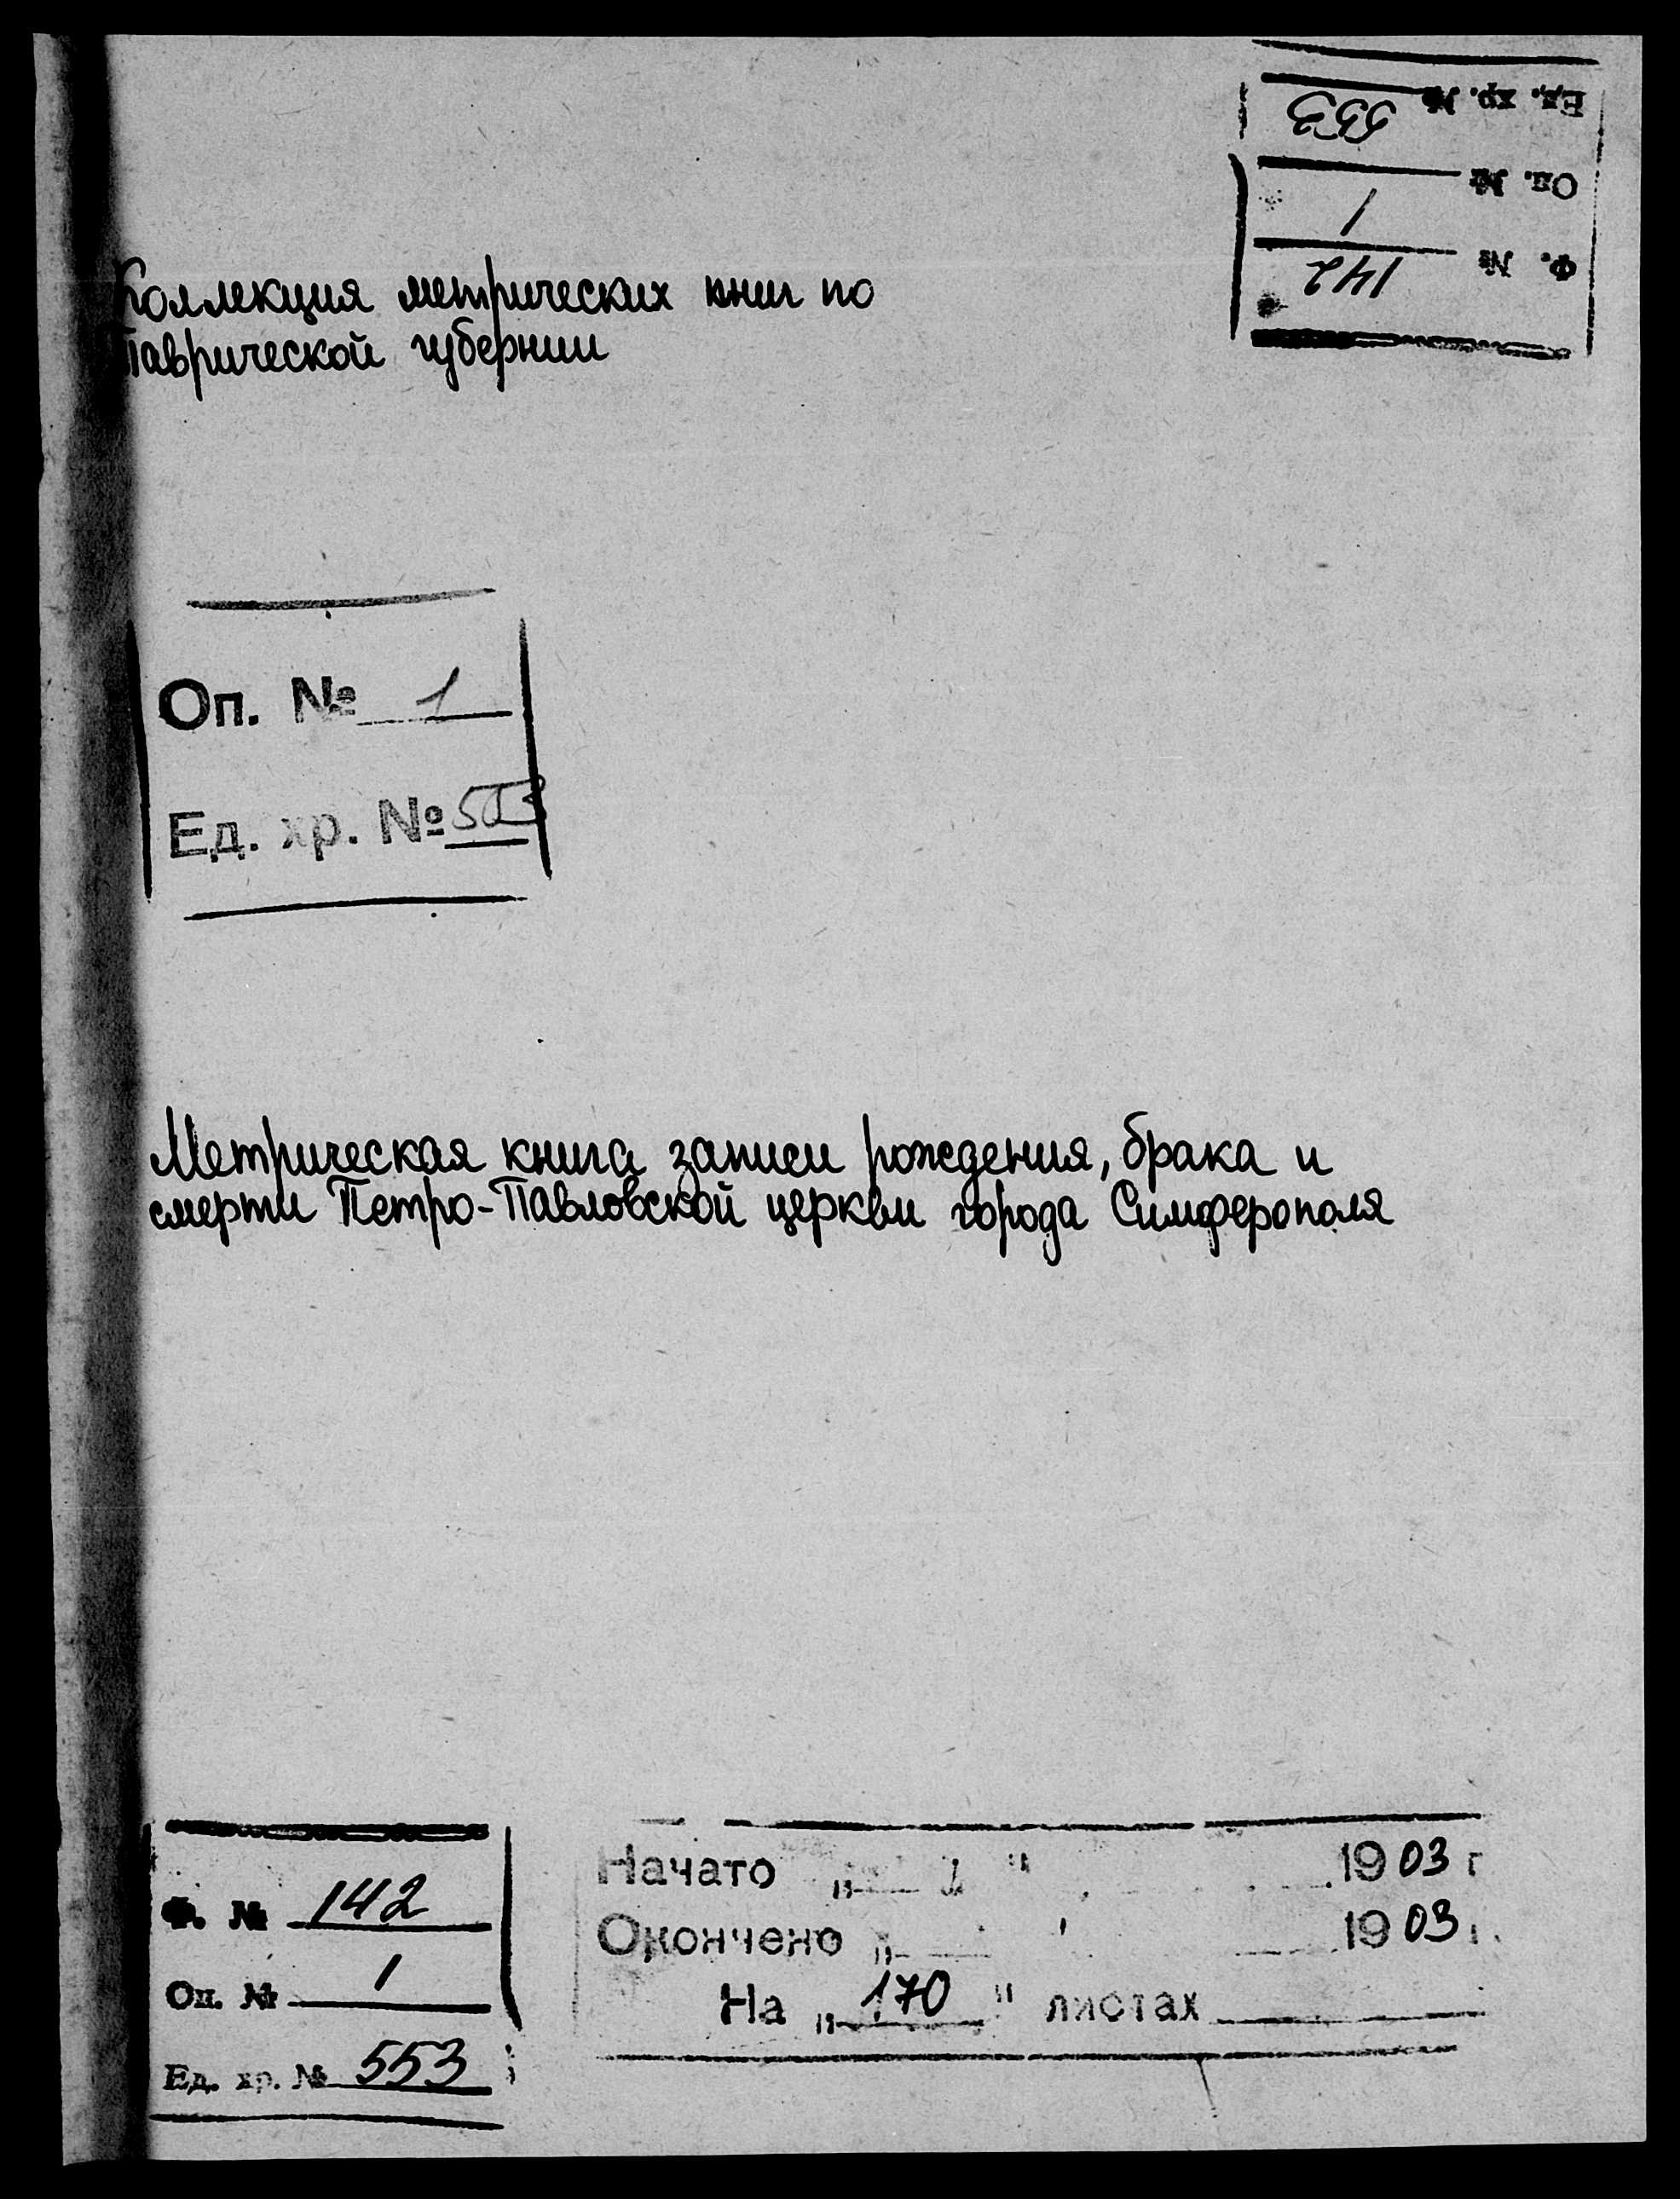 Ед. хр. № 553
Оп. № 1
Ф. № 142
Коллекция метрических книг по
Таврической губернии
Оп. № 1
Ед. хр. № 553
Метрическая книга записи рождения, брака и
смерти Петро-Павловской церкви города Симферополя
Ф. № 142
Оп. № 1
Ед. хр. № 553
Начато „ " 1903 г
Окончено „ 1903 г.
На „170" листах